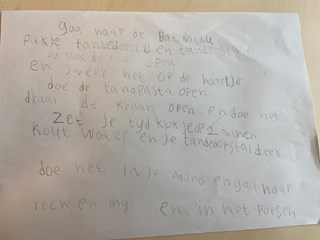 gaa naar de Batkamer
pakje tandedorstul en tandpasta
en smeer het op de haartje
doe de tandpasta open
draai de kraan open en doe het
zet je tyd klokje op 2 minen
kout water en je tandedorstal
doe het in je mond en ga naar
rech en ing en in het